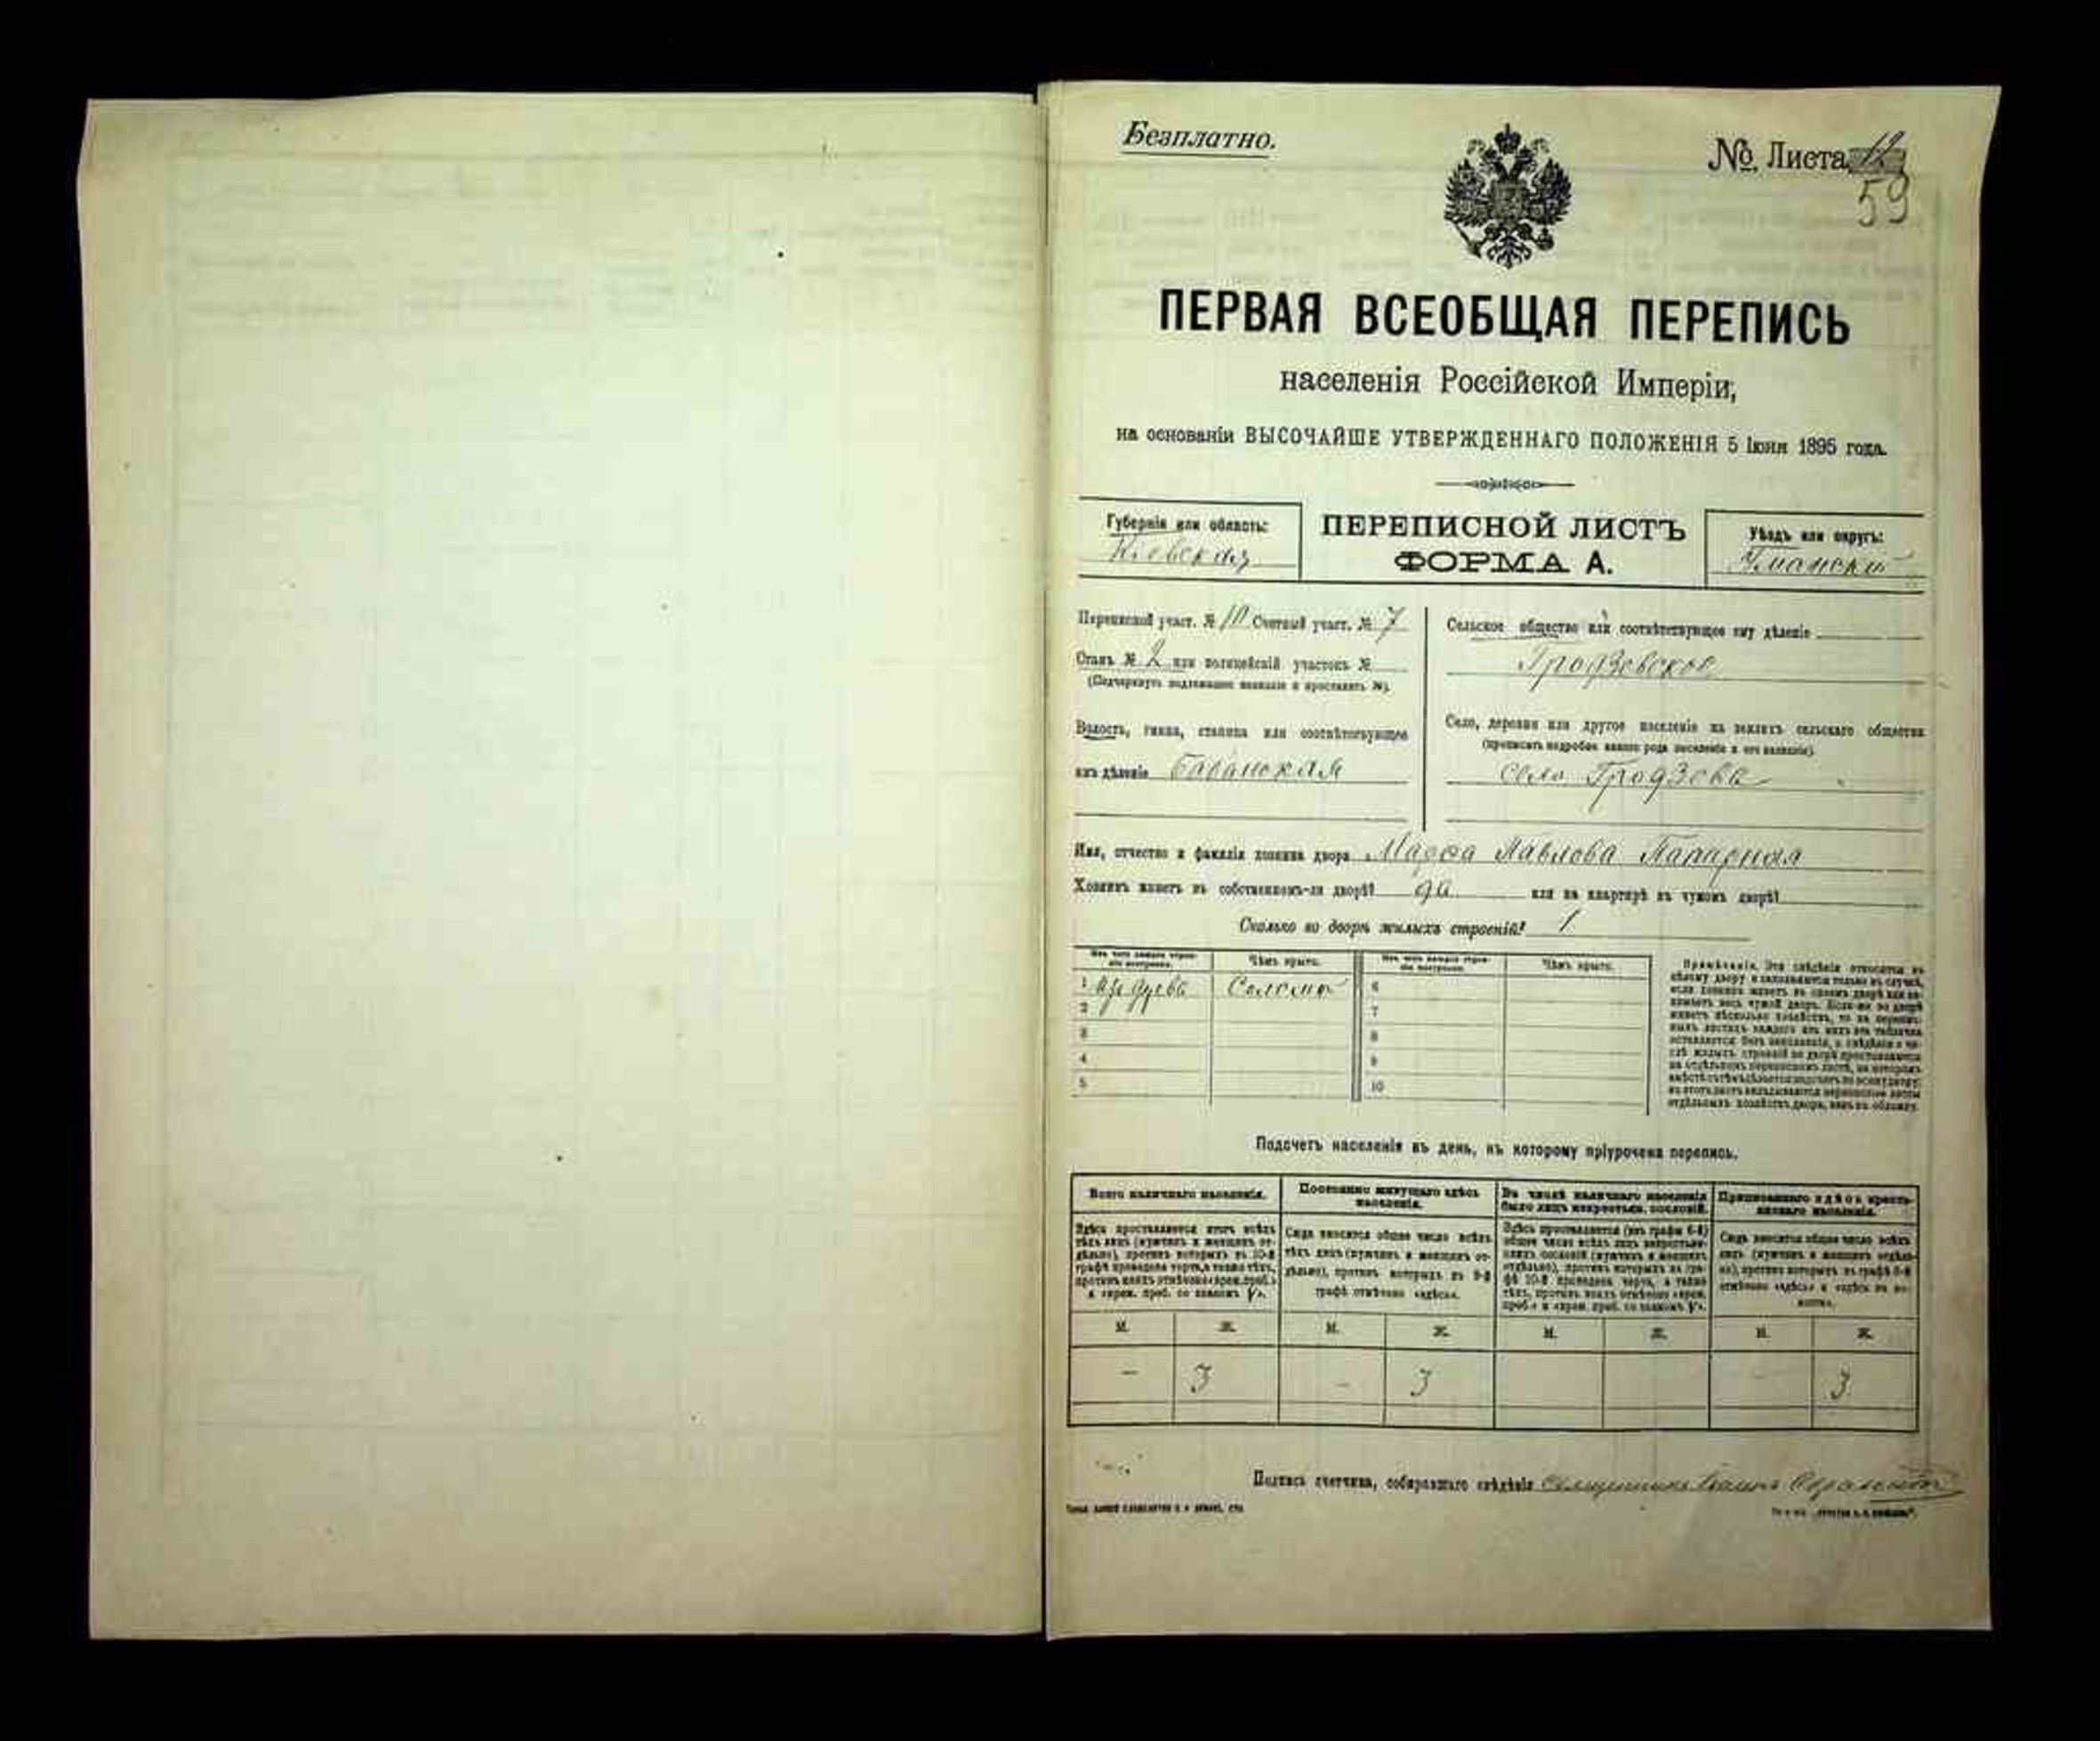 Безплатно.
№ Листа 12
59
ПЕРВАЯ ВСЕОБЩАЯ ПЕРЕПИСЬ
населенія Россійской Имперіи,
на основаніи ВЫСОЧАЙШЕ УТВЕРЖДЕННАГО ПОЛОЖЕНІЯ 5 Іюня 1895 года.
Губернія или область:
Кіевская
ПЕРЕПИСНОЙ ЛИСТЪ
ФОРМА А.
Уѣздъ или округъ:
Уманскій
Переписной участ. № 10 Счетный участ. № 7
Станъ № 2 или полицейскій участокъ №
(Подчеркнуть подлежащее названіе и проставить №).
Волость, гмина, станица или соотвѣтствующее
имъ дѣленіе Бабанская
Сельское общество или соотвѣтствующее ему дѣленіе
Гродзевское
Село, деревня или другое поселеніе на земляхъ сельскаго общества
(прописать подробно какого рода поселеніе и его названіе).
село Гродзева
Имя, отчество и фамилія хозяина двора Павлова
Хозяинъ живетъ въ собственномъ-ли дворѣ? да или на квартирѣ въ чужомъ дворѣ?
Сколько во дворѣ жилыхъ строеній? 1
Изъ чего каждое строеніе построено. Чѣмъ крыто. Изъ чего каждое строеніе построено. Чѣмъ крыто.
1 изъ дерева Соломой 6
2 7
3 8
4 9
5 10
Примѣчаніе. Эти свѣдѣнія относятся къ
цѣлому двору и заполняются только въ случаѣ,
если хозяинъ живетъ въ своемъ дворѣ или за-
нимаетъ весь чужой дворъ. Если-же во дворѣ
живетъ нѣсколько хозяйствъ, то на перепис-
ныхъ листахъ каждаго изъ нихъ эта табличка
оставляется безъ заполненія, а свѣдѣнія о чи-
слѣ жилыхъ строеній во дворѣ проставляются
на отдѣльномъ переписномъ листѣ, на которомъ
отдѣльныхъ хозяйствъ двора, какъ въ обложку.
Подсчетъ населенія въ день, къ которому пріурочена перепись.
Всего наличнаго населенія.
Здѣсь проставляется итогъ всѣхъ
тѣхъ лицъ (мужчинъ и женщинъ от-
дѣльно), противъ которыхъ въ 10-й
графѣ проведена черта, а также тѣхъ,
противъ коихъ отмѣчено «врем. преб.»
и «врем. преб. со знакомъ V».
Постоянно живущаго здѣсь
населенія.
Сюда вносится общее число всѣхъ
тѣхъ лицъ (мужчинъ и женщинъ от-
дѣльно), противъ которыхъ въ 9-й
графѣ отмѣчено «здѣсь».
Въ числѣ наличнаго населенія
было лицъ некрестьян. сословій.
Здѣсь проставляется (изъ графы 6-й)
общее число всѣхъ лицъ некрестьян-
скихъ сословій (мужчинъ и женщинъ
отдѣльно), противъ которыхъ въ гра-
фѣ 10-й проведена черта, а также
тѣхъ, противъ коихъ отмѣчено «врем.
преб.» и «врем. преб. со знакомъ V».
Приписаннаго здѣсь кресть-
янскаго населенія.
Сюда вносится общее число всѣхъ
лицъ (мужчинъ и женщинъ отдѣль-
но), противъ которыхъ въ графѣ 8-й
отмѣчено «здѣсь» и «здѣсь въ во-
лости».
М. Ж. М. Ж. М. Ж. М. Ж.
— 3 — 3 3
Подпись счетчика, собиравшаго свѣдѣнія Священникъ